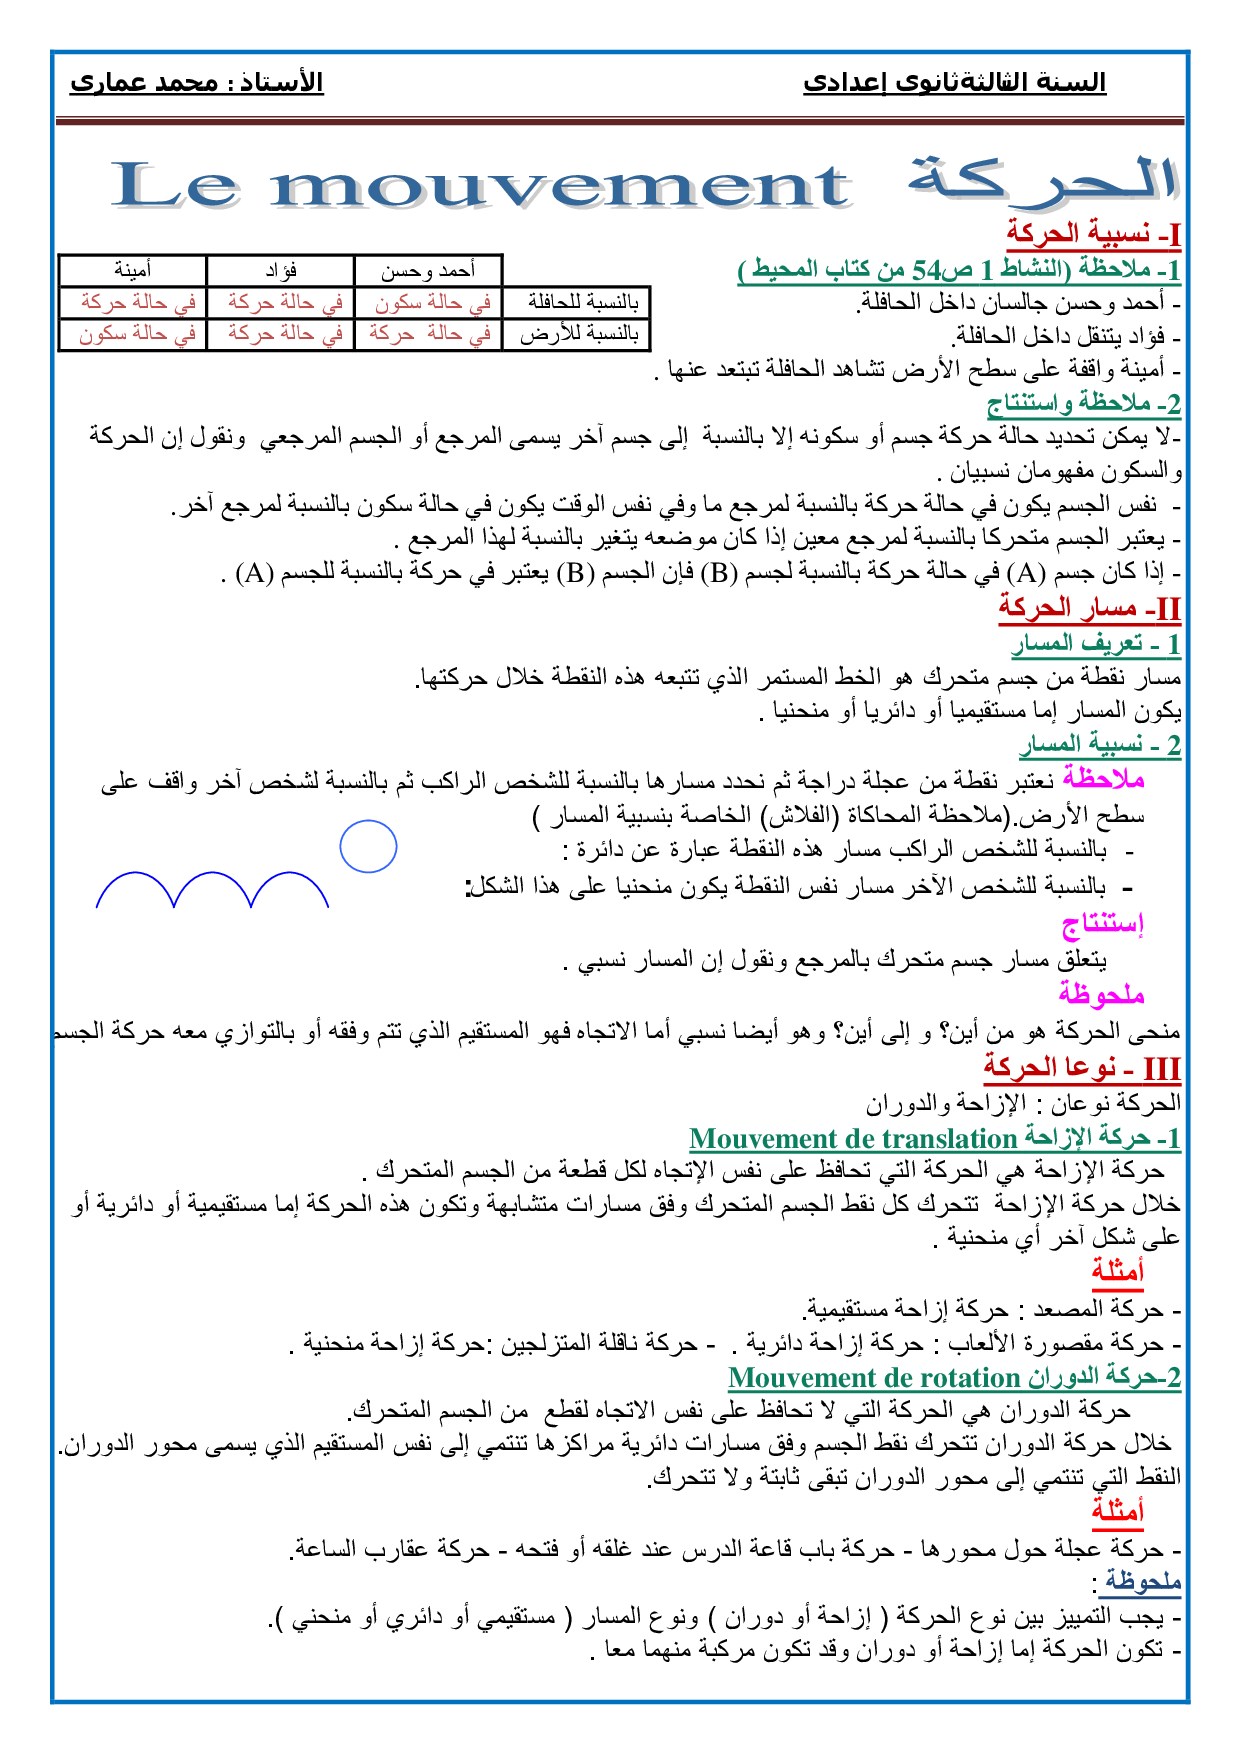 السنة الثالثةثانوي إعدادي
الأستاذ : محمد عماري
الحركة Le mouvement
I- نسبية الحركة
1- ملاحظة (النشاط 1 ص54 من كتاب المحيط )
أحمد وحسن فؤاد أمينة
بالنسبة للحافلة في حالة سكون في حالة حركة في حالة حركة
بالنسبة للأرض في حالة حركة في حالة حركة في حالة سكون
- أحمد وحسن جالسان داخل الحافلة.
- فؤاد يتنقل داخل الحافلة.
- أمينة واقفة على سطح الأرض تشاهد الحافلة تبتعد عنها .
2- ملاحظة واستنتاج
-لا يمكن تحديد حالة حركة جسم أو سكونه إلا بالنسبة إلى جسم آخر يسمى المرجع أو الجسم المرجعي ونقول إن الحركة
والسكون مفهومان نسبيان .
- نفس الجسم يكون في حالة حركة بالنسبة لمرجع ما وفي نفس الوقت يكون في حالة سكون بالنسبة لمرجع آخر.
- يعتبر الجسم متحركا بالنسبة لمرجع معين إذا كان موضعه يتغير بالنسبة لهذا المرجع .
- إذا كان جسم (A) في حالة حركة بالنسبة لجسم (B) فإن الجسم (B) يعتبر في حركة بالنسبة للجسم (A) .
II- مسار الحركة
1 - تعريف المسار
مسار نقطة من جسم متحرك هو الخط المستمر الذي تتبعه هذه النقطة خلال حركتها.
يكون المسار إما مستقيميا أو دائريا أو منحنيا .
2 - نسبية المسار
ملاحظة نعتبر نقطة من عجلة دراجة ثم نحدد مسارها بالنسبة للشخص الراكب ثم بالنسبة لشخص آخر واقف على
سطح الأرض.(ملاحظة المحاكاة (الفلاش) الخاصة بنسبية المسار )
- بالنسبة للشخص الراكب مسار هذه النقطة عبارة عن دائرة :
- بالنسبة للشخص الآخر مسار نفس النقطة يكون منحنيا على هذا الشكل:
إستنتاج
يتعلق مسار جسم متحرك بالمرجع ونقول إن المسار نسبي .
ملحوظة
منحى الحركة هو من أين؟ و إلى أين؟ وهو أيضا نسبي أما الاتجاه فهو المستقيم الذي تتم وفقه أو بالتوازي معه حركة الجسم
III - نوعا الحركة
الحركة نوعان : الإزاحة والدوران
1- حركة الإزاحة Mouvement de translation
حركة الإزاحة هي الحركة التي تحافظ على نفس الإتجاه لكل قطعة من الجسم المتحرك .
خلال حركة الإزاحة تتحرك كل نقط الجسم المتحرك وفق مسارات متشابهة وتكون هذه الحركة إما مستقيمية أو دائرية أو
على شكل آخر أي منحنية .
أمثلة
- حركة المصعد : حركة إزاحة مستقيمية.
- حركة مقصورة الألعاب : حركة إزاحة دائرية . - حركة ناقلة المتزلجين :حركة إزاحة منحنية .
2-حركة الدوران Mouvement de rotation
حركة الدوران هي الحركة التي لا تحافظ على نفس الاتجاه لقطع من الجسم المتحرك.
خلال حركة الدوران تتحرك نقط الجسم وفق مسارات دائرية مراكزها تنتمي إلى نفس المستقيم الذي يسمى محور الدوران.
النقط التي تنتمي إلى محور الدوران تبقى ثابتة ولا تتحرك.
أمثلة
- حركة عجلة حول محورها - حركة باب قاعة الدرس عند غلقه أو فتحه - حركة عقارب الساعة.
ملحوظة :
- يجب التمييز بين نوع الحركة ( إزاحة أو دوران ) ونوع المسار ( مستقيمي أو دائري أو منحني ).
- تكون الحركة إما إزاحة أو دوران وقد تكون مركبة منهما معا .